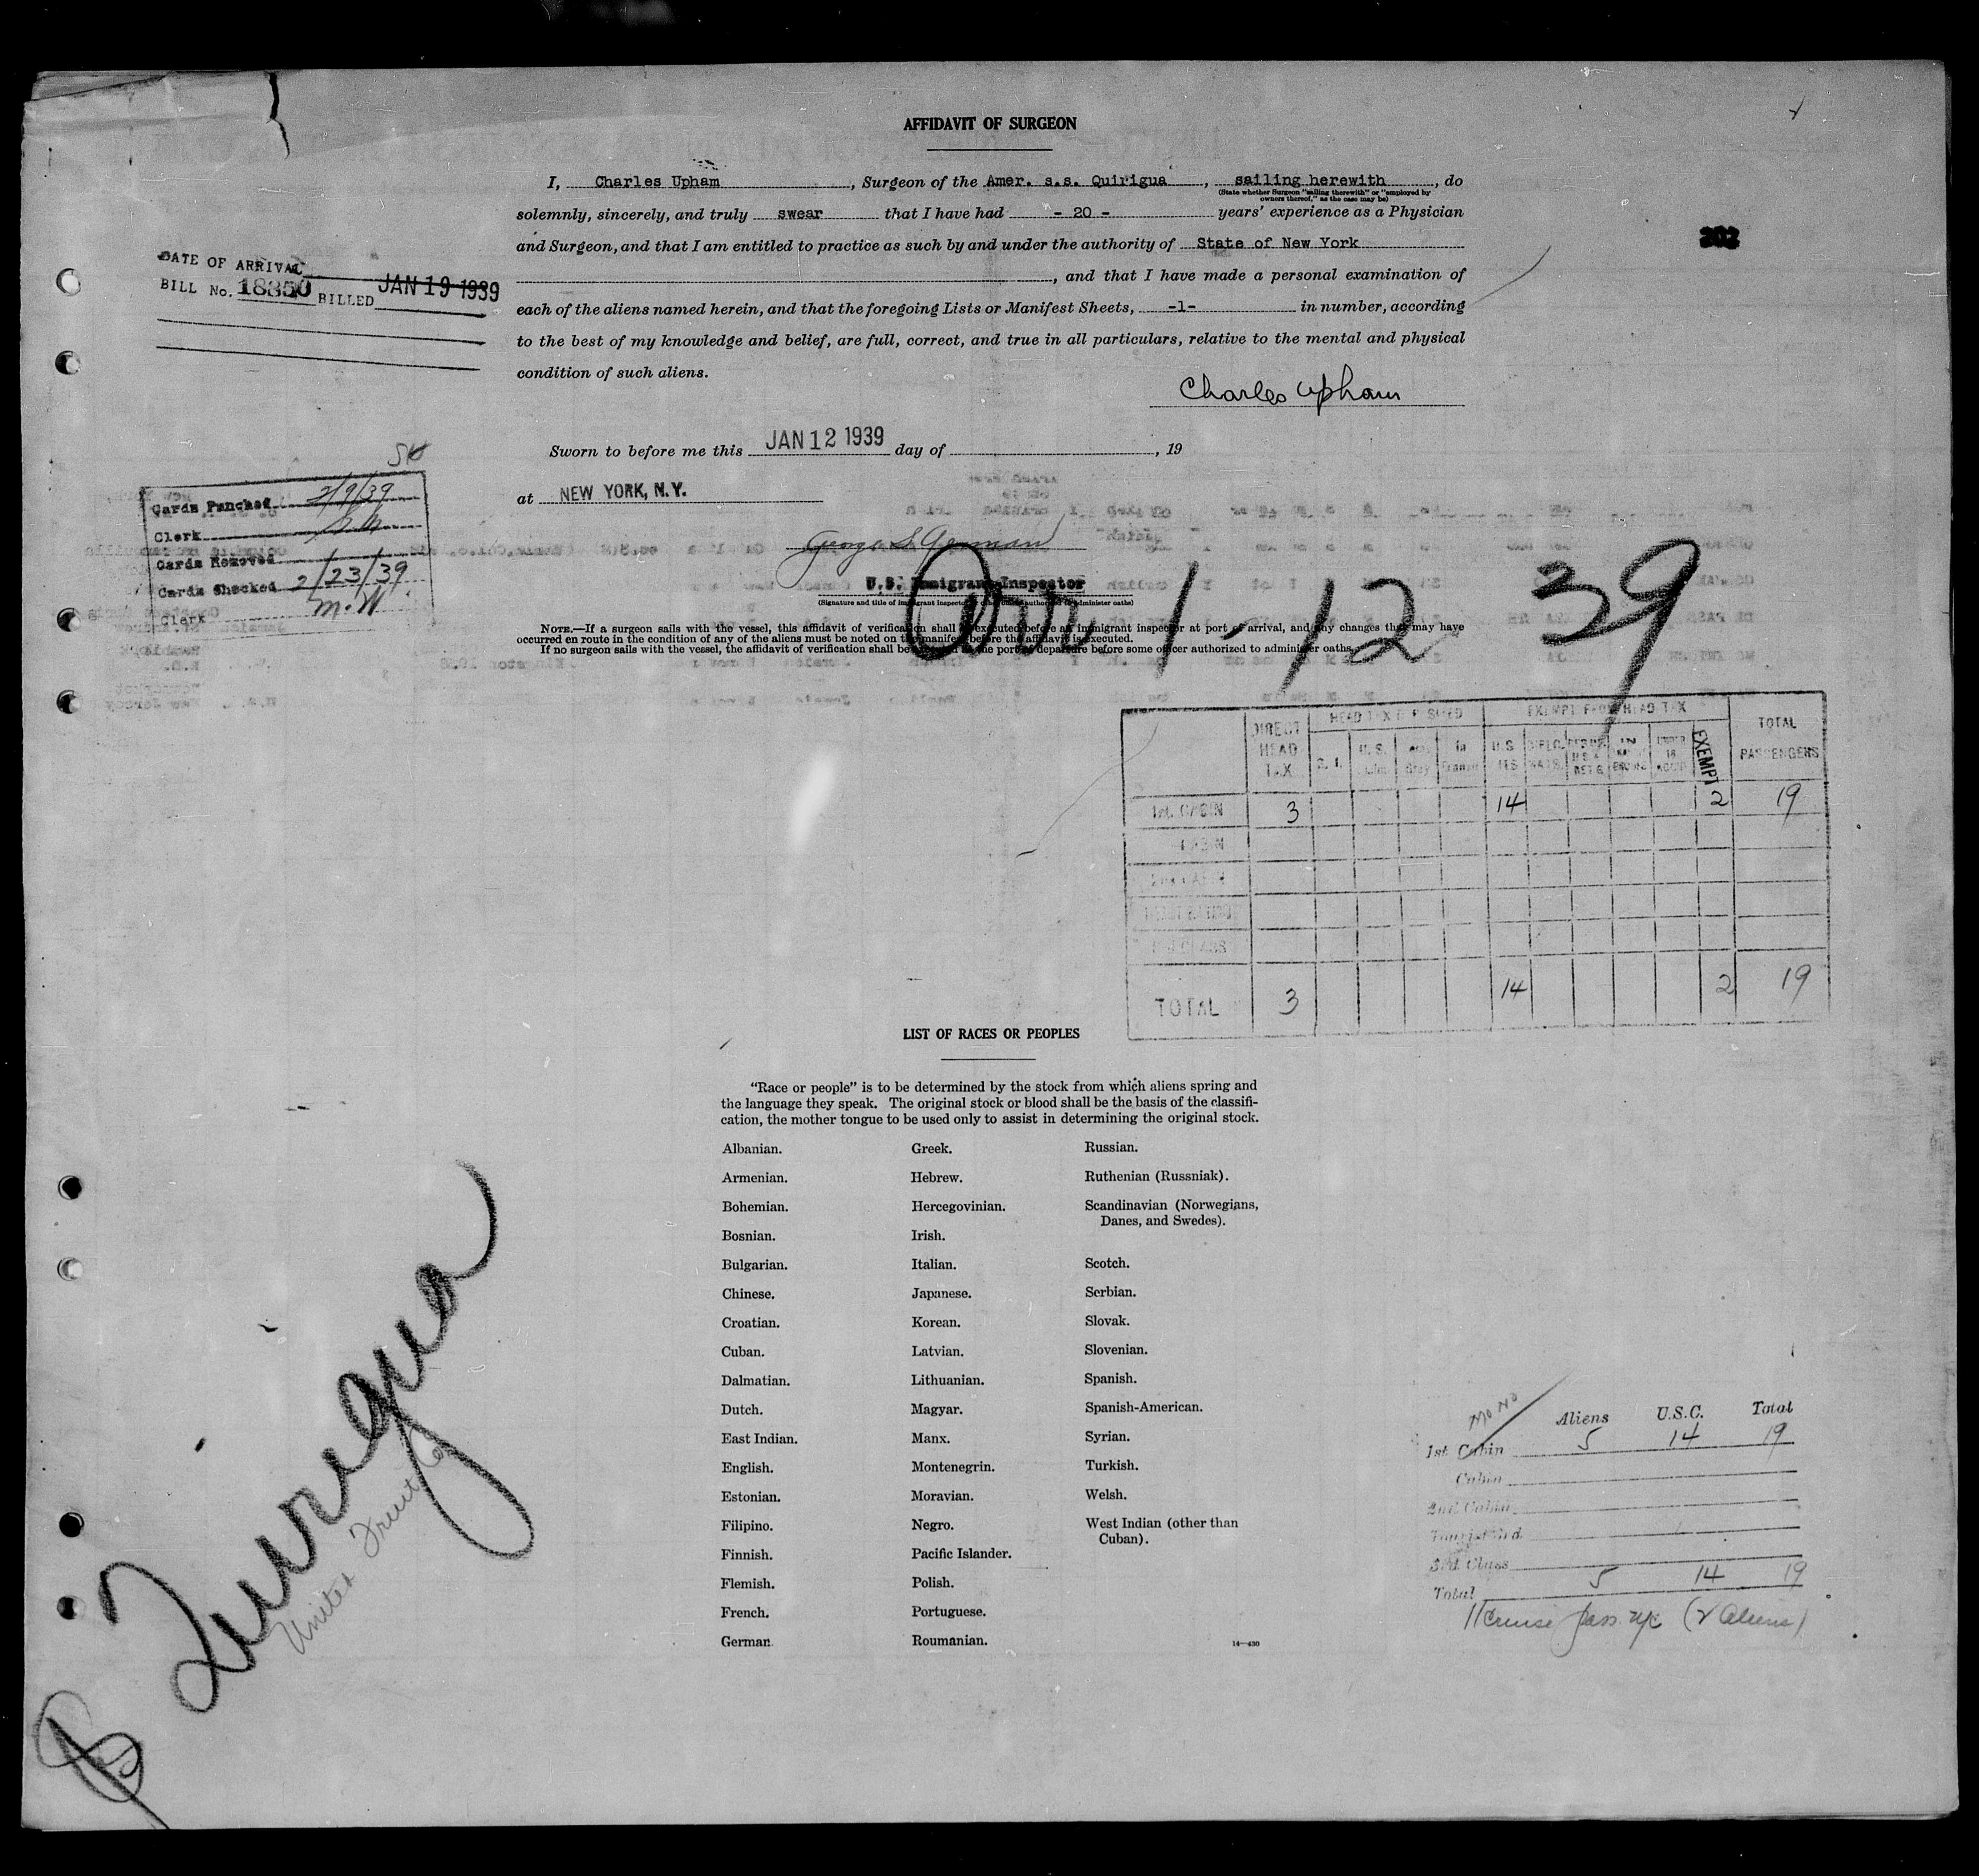 AFFIDAVIT OF SURGEON
I, Charles Upham, Surgeon of the Amer. s.s. Quirigua, sailing herewith, do
(State whether Surgeon "sailing therewith" or "employed by
owners thereof," as the case may be)
solemnly, sincerely, and truly swear that I have had - 20 - years' experience as a Physician
and Surgeon, and that I am entitled to practice as such by and under the authority of State of New York
, and that I have made a personal examination of
each of the aliens named herein, and that the foregoing Lists or Manifest Sheets, -1- in number, according
to the best of my knowledge and belief, are full, correct, and true in all particulars, relative to the mental and physical
condition of such aliens.
Charles Upham
202
DATE OF ARRIVAL
BILL No. 18350 BILLED JAN 19 1939
Sworn to before me this JAN 12 1939 day of , 19
at NEW YORK, N.Y.
Cards Punched 2/9/39
Clerk
Cards Removed
Cards Checked 2/23/39
Clerk M.W.
U.S. Immigrant Inspector
(Signature and title of immigrant inspector or other officer authorized to administer oaths)
Arr 1-12 39
NOTE.—If a surgeon sails with the vessel, this affidavit of verification shall be executed before an immigrant inspector at port of arrival, and any changes that may have
occurred en route in the condition of any of the aliens must be noted on the manifest before the affidavit is executed.
If no surgeon sails with the vessel, the affidavit of verification shall be executed at the port of departure before some officer authorized to administer oaths.
DIRECT HEAD TAX
HEAD TAX DEPOSITED
EXEMPT FROM HEAD TAX
TOTAL PASSENGERS
EXEMPT
1st. CABIN 3 14 2 19
CABIN
2nd CABIN
TOTAL 3 14 2 19
LIST OF RACES OR PEOPLES
"Race or people" is to be determined by the stock from which aliens spring and
the language they speak. The original stock or blood shall be the basis of the classifi-
cation, the mother tongue to be used only to assist in determining the original stock.
Albanian. Greek. Russian.
Armenian. Hebrew. Ruthenian (Russniak).
Bohemian. Hercegovinian. Scandinavian (Norwegians,
Danes, and Swedes).
Bosnian. Irish.
Bulgarian. Italian. Scotch.
Chinese. Japanese. Serbian.
Croatian. Korean. Slovak.
Cuban. Latvian. Slovenian.
Dalmatian. Lithuanian. Spanish.
Dutch. Magyar. Spanish-American.
East Indian. Manx. Syrian.
English. Montenegrin. Turkish.
Estonian. Moravian. Welsh.
Filipino. Negro. West Indian (other than
Cuban).
Finnish. Pacific Islander.
Flemish. Polish.
French. Portuguese.
German Roumanian.
14—430
Quirigua
United Fruit Co
Aliens U.S.C. Total
1st Cabin 5 14 19
Cabin
2nd Cabin
3rd Class
Total 5 14 19
11 Cruise pass. (2 Aliens)